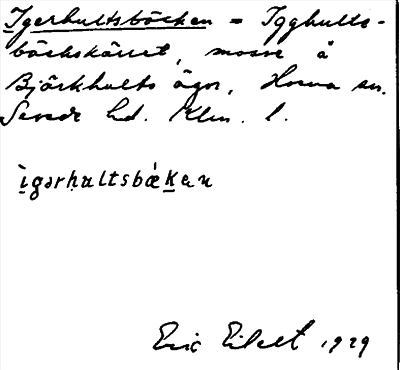 Igerhultsbäcken = Igghults-
bäckskärret, mosse å
Björkhults ägor, Horna sn.
Sevede hd. Klm. l.
ìgərhultsbǽkən
Eric Eilert 1929